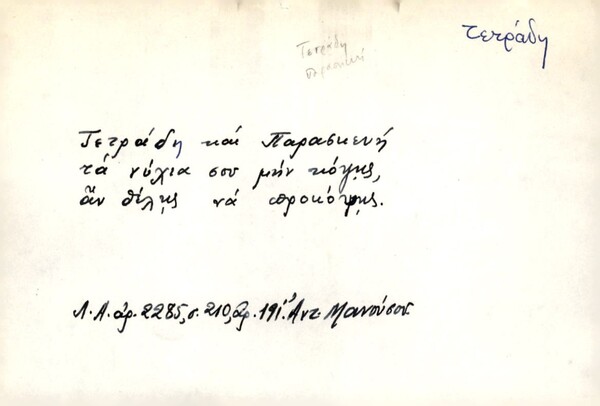 τετράδη
Τετράδη
Τετράδη καί Παρασκευή
τά νύχια σου μήν κόψῃς,
ἄν θέλῃς νά προκόψῃς.
Λ.Α. ἀρ. 2285, σ. 210, ἀρ. 191. Ἀντ. Μανούσου.